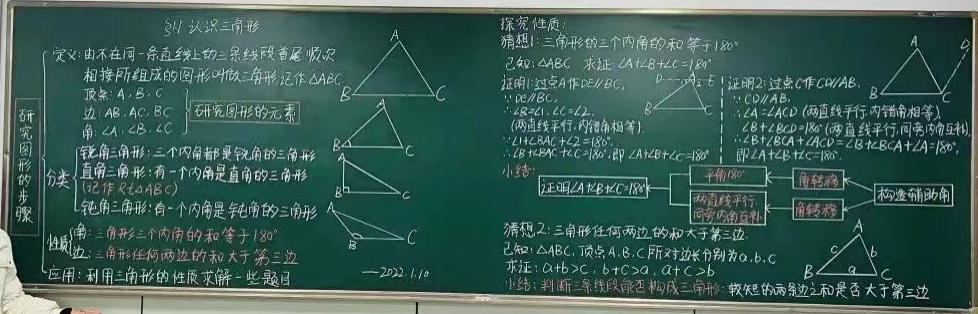 §1.1 认识三角形
研究图形的步骤
定义:由不在同一条直线上的三条线段首尾顺次
相接所组成的图形叫做三角形,记作△ABC.
顶点:A、B、C
边:AB、AC、BC
角:∠A、∠B、∠C
研究图形的元素
分类
锐角三角形:三个内角都是锐角的三角形
直角三角形:有一个内角是直角的三角形
(记作Rt△ABC)
钝角三角形:有一个内角是钝角的三角形
性质
角:三角形三个内角的和等于180°
边:三角形任何两边的和大于第三边
应用:利用三角形的性质求解一些题目
—2022.1.10
A
B
C
A
B
C
A
B
C
A
B
C
探究性质:
猜想1:三角形的三个内角的和等于180°
已知:△ABC 求证:∠A+∠B+∠C=180°
证明1:过点A作DE//BC,
∵DE//BC,
∴∠B=∠1,∠C=∠2.
(两直线平行,内错角相等).
∵∠1+∠BAC+∠2=180°.
∴∠B+∠BAC+∠C=180°.即∠A+∠B+∠C=180°
D
A
E
B
C
证明2:过点C作CD//AB.
∵CD//AB,
∴∠A=∠ACD(两直线平行,内错角相等).
∠B+∠BCD=180°(两直线平行,同旁内角互补)
∴∠B+∠BCA+∠ACD=∠B+∠BCA+∠A=180°,
即∠A+∠B+∠C=180°.
A
D
B
C
小结:
证明∠A+∠B+∠C=180°
平角180°
两直线平行
同旁内角互补
角转移
角转移
构造辅助角
猜想2:三角形任何两边的和大于第三边.
已知:△ABC,顶点A、B、C所对边长分别为a、b、c
求证:a+b>c,b+c>a,a+c>b
小结:判断三条线段能否构成三角形:较短的两条边之和是否大于第三边
A
B
C
c
b
a